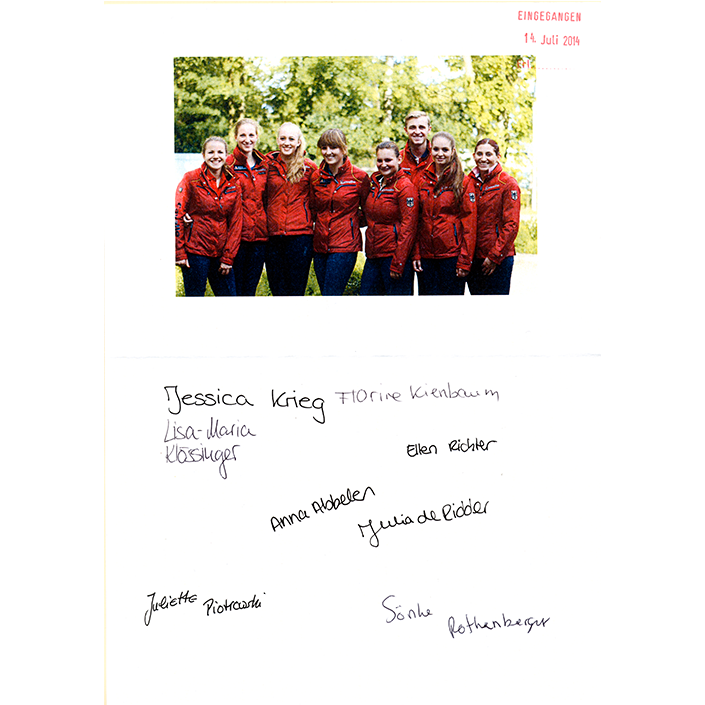 EINGEGANGEN
14. Juli 2014
Jessica Krieg Florine Kienbaum
Lisa-Maria
Klössinger
Ellen Richter
Anna Abbelen
Julia de Ridder
Juliette Piotrowski
Sönke Rothenberger